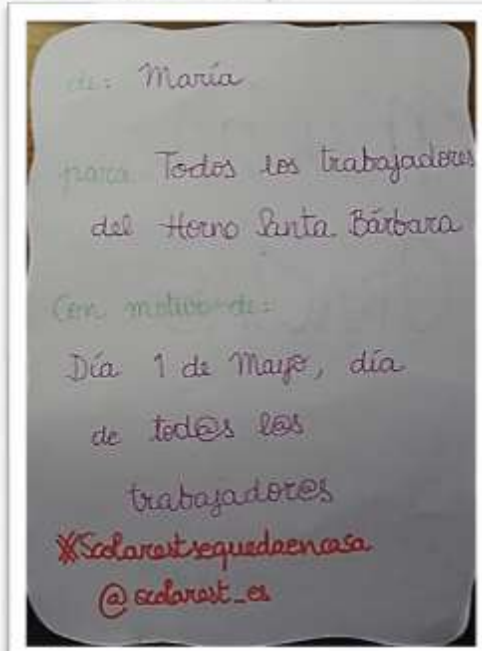 de: María
para Todos los trabajadores
del Horno Santa Bárbara
Con motivo de:
Día 1 de Mayo, día
de tod@s l@s
trabajador@s
#Scolarestsequedaencasa
@scolarest_es